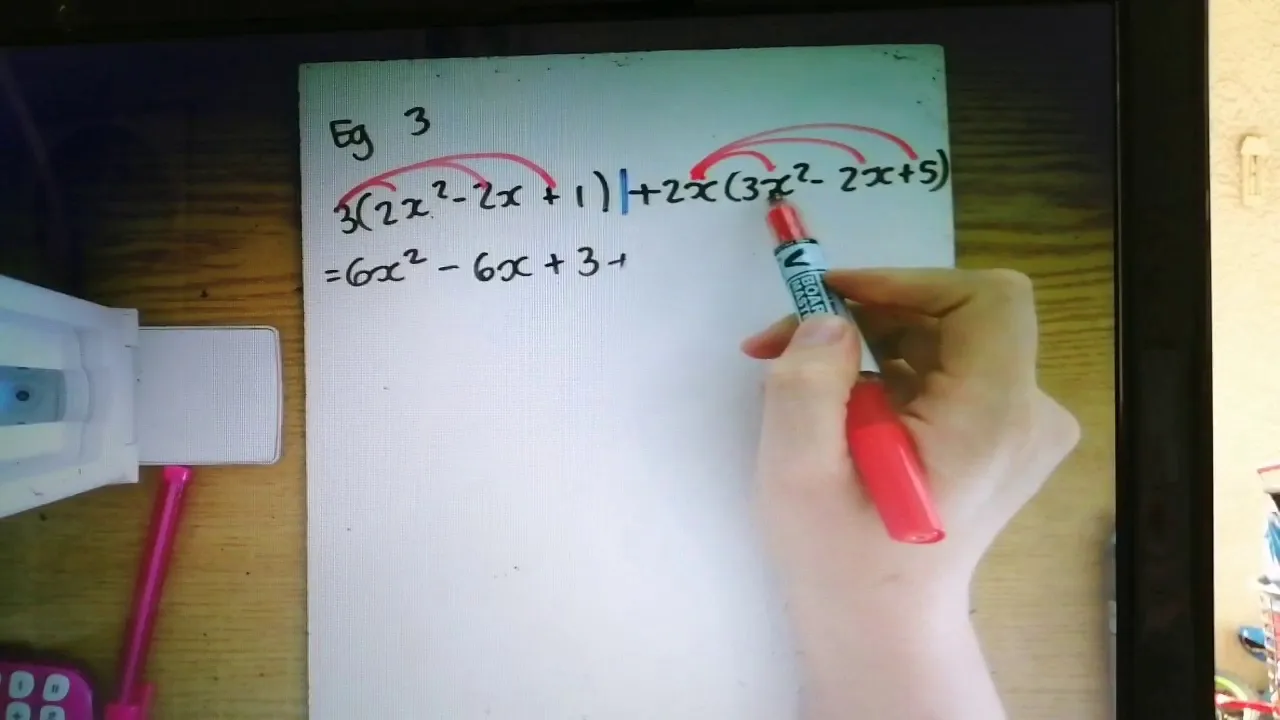 Eg 3
3(2x² - 2x + 1) | + 2x(3x² - 2x + 5)
= 6x² - 6x + 3 +